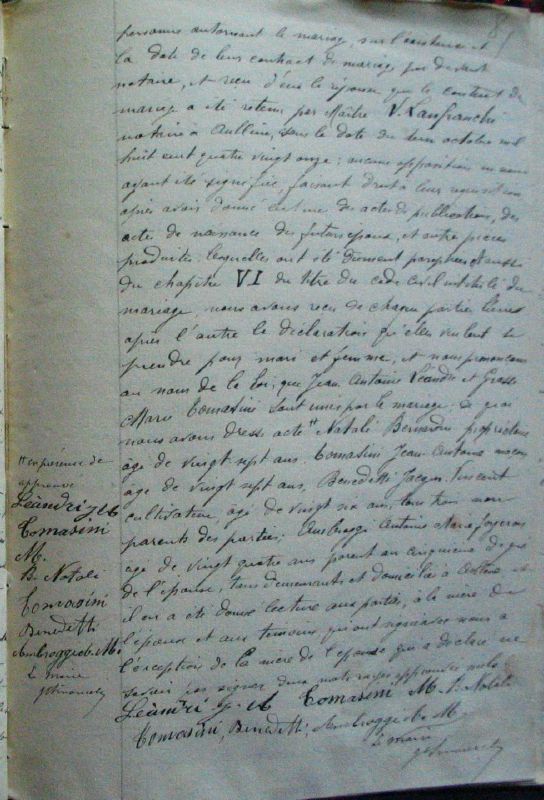 personnes autorisant le mariage, sur l'existence et
la date de leur contract de mariage par devant
notaire, et reçu d'eux la réponse que le contrat de
mariage a été retenu par Maître V. Lanfranchi
notaire à Aullène, sous la date du trois octobre mil
huit cent quatre vingt onze; aucune opposition ne nous
ayant été signifiée, faisant droit à leur réquisition
après avoir donné lecture des actes de publications, des
actes de naissances des futurs époux, et autre pièces
produites, lesquelles ont été dûment paraphées et aussi
du chapitre VI du titre du code civil intitulé du
mariage, nous avons reçu de chaque partie l'une
après l'autre la déclaration qu'elles veulent se
prendre pour mari et femme, et nous prononçons
au nom de la loi, que Jean Antoine Léandri et
Marie Tomasini sont unis par le mariage. De quoi
nous avons dressé acte " Natali Bernardin propriétaire
âgé de vingt sept ans. Tomasini Jean Antoine maçon
âgé de vingt sept ans, Benedetti Jacques Vincent
cultivateur, âgé de vingt six ans, tous trois non
parents des parties; Ambroggi Antoine Marie
âgé de vingt quatre ans parent au cinquième degré
de l'épouse, tous demeurants et domiciliés à
il en a été donné lecture aux parties, à la mère de
l'épouse et aux témoins, qui ont signé avec nous à
l'exception de la mère de l'épouse qui a déclaré ne
savoir pas signer deux mots rayés approuvés nuls
Léandri J. A Tomasini M. B. Natali
Tomasini, Benedetti, Ambroggi A. M.
Le maire
81
" en présence de
approuvé
Léandri J A
Tomasini
M.
B. Natali
Tomasini
Benedetti
Ambroggi A. M.
Le maire